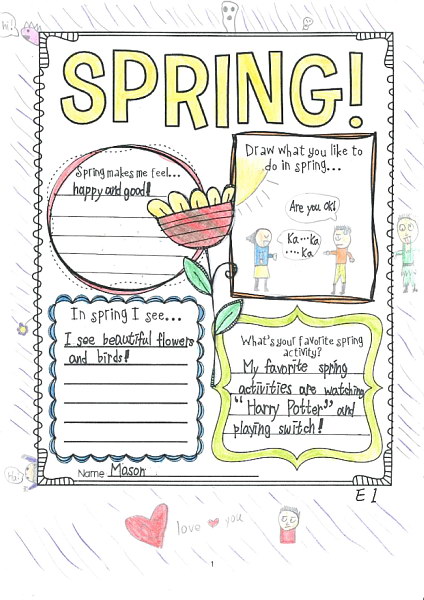 Hi!
SPRING!
Spring makes me feel...
happy and good!
Draw what you like to
do in spring...
Are you ok!
Ka...Ka
....Ka
In spring I see...
I see beautiful flowers
and birds!
What's your favorite spring
activity?
My favorite spring
activities are watching
"Harry Potter" and
playing switch!
Name Mason
E 1
love you
1